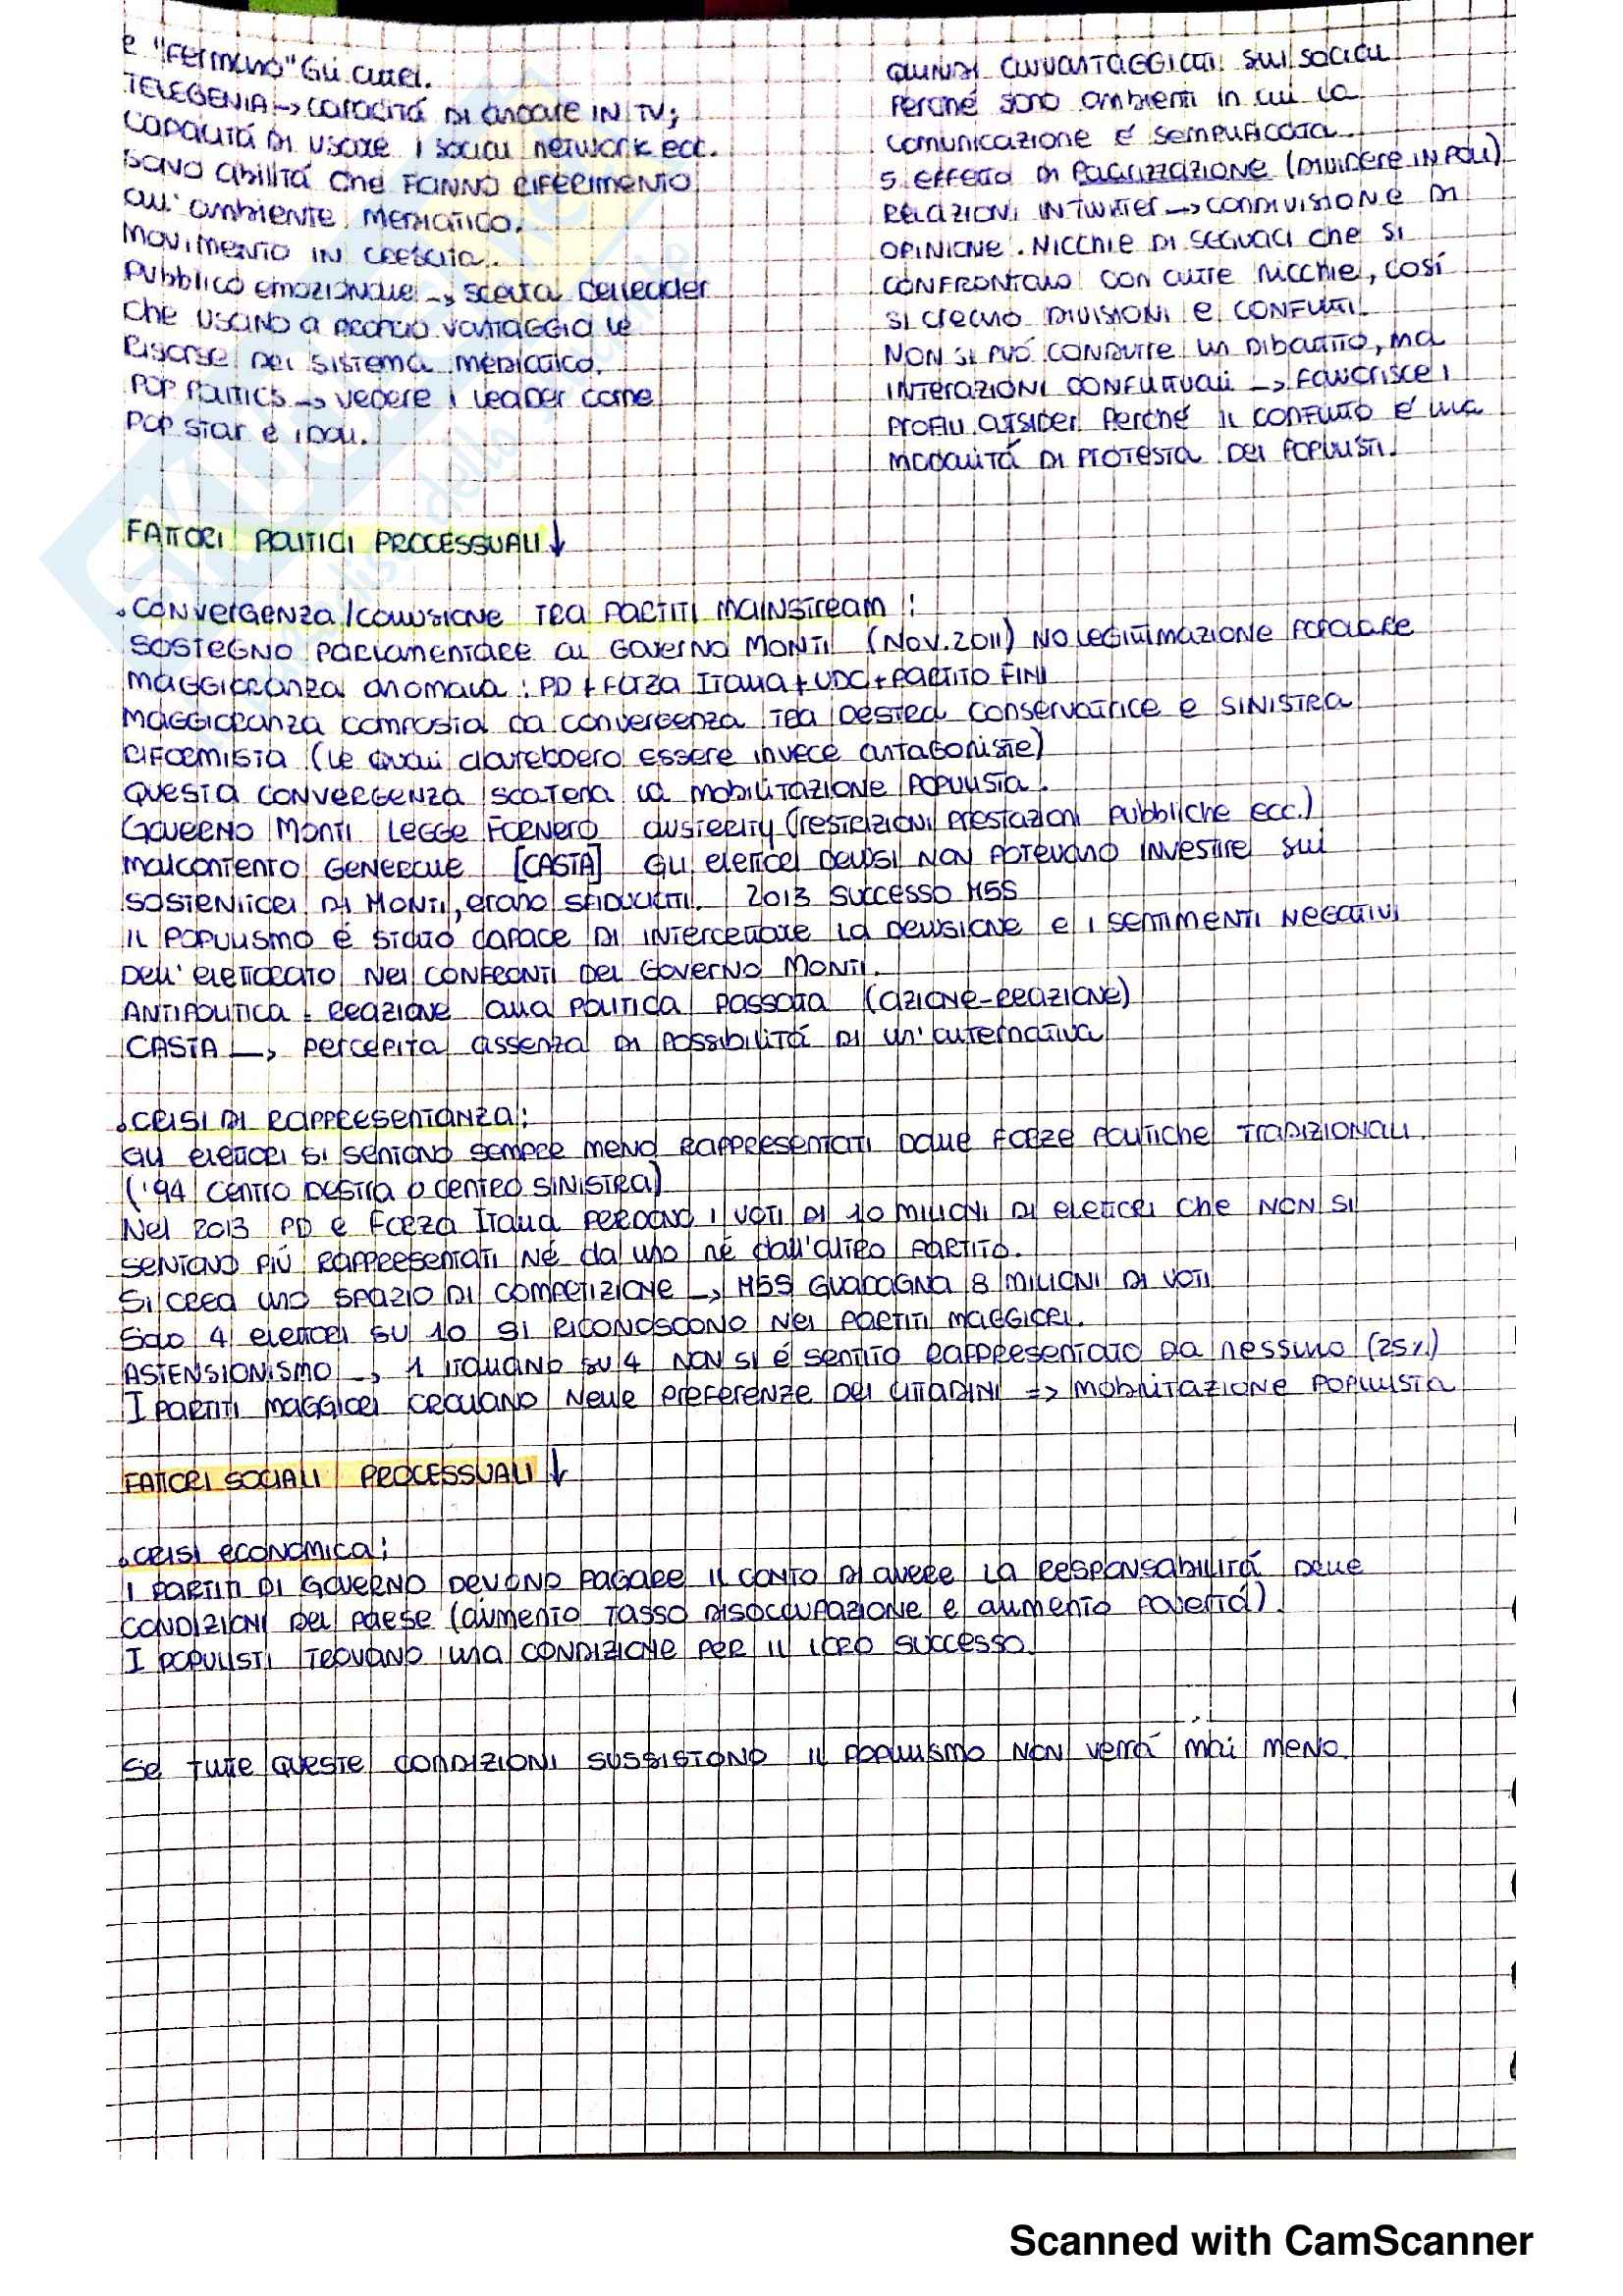 e "fermano" gli altri.
TELEGENIA → capacità di andare IN TV;
capacità di usare i social network ecc.
Sono abilità che fanno riferimento
all'ambiente mediatico.
Movimento in crescita.
Pubblico emozionale → scelta del leader
che usano a proprio vantaggio le
risorse del sistema mediatico.
POP POLITICS → vedere i leader come
pop star e idoli.
quindi avvantaggiati sui social
perché sono ambienti in cui la
comunicazione é semplificata.
5. effetto di polarizzazione (dividere in poli)
Relazioni in Twitter → condivisione di
opinione. Nicchie di seguaci che si
confrontano con altre nicchie, così
si creano divisioni e conflitti.
Non si può condurre un dibattito, ma
interazioni conflittuali → favorisce i
profili outsider perché il conflitto é una
modalità di protesta dei populisti.
FATTORI POLITICI PROCESSUALI ↓
. Convergenza/collusione tra partiti mainstream:
Sostegno parlamentare al Governo Monti (Nov. 2011) no legittimazione popolare
Maggioranza anomala: PD + Forza Italia + UDC + Partito Fini
Maggioranza composta da convergenza tra destra conservatrice e sinistra
riformista (le quali dovrebbero essere invece antagoniste)
Questa convergenza scatena la mobilitazione populista.
Governo Monti Legge Fornero austerity (restrizioni prestazioni pubbliche ecc.)
malcontento generale [CASTA] Gli elettori delusi non potevano investire sui
sostenitori di Monti, erano sfiduciati. 2013 successo M5S
Il populismo é stato capace di intercettare la delusione e i sentimenti negativi
dell'elettorato nei confronti del Governo Monti.
ANTIPOLITICA = reazione alla politica passata (azione-reazione)
CASTA → percepita assenza di possibilità di un'alternativa
. Crisi di rappresentanza:
Gli elettori si sentono sempre meno rappresentati dalle forze politiche tradizionali.
('94 centro destra o centro sinistra)
Nel 2013 PD e Forza Italia perdono i voti di 10 milioni di elettori che non si
sentono più rappresentati né da uno né dall'altro partito.
Si crea uno spazio di competizione → M5S guadagna 8 milioni di voti
Solo 4 elettori su 10 si riconoscono nei partiti maggiori.
ASTENSIONISMO → 1 italiano su 4 non si é sentito rappresentato da nessuno (25%)
I partiti maggiori crollano nelle preferenze dei cittadini => mobilitazione populista
FATTORI SOCIALI PROCESSUALI ↓
. Crisi economica:
I partiti di Governo devono pagare il conto di avere la responsabilità delle
condizioni del paese (aumento tasso disoccupazione e aumento povertà).
I populisti trovano una condizione per il loro successo.
Se tutte queste condizioni sussistono il populismo non verrà mai meno.
Scanned with CamScanner